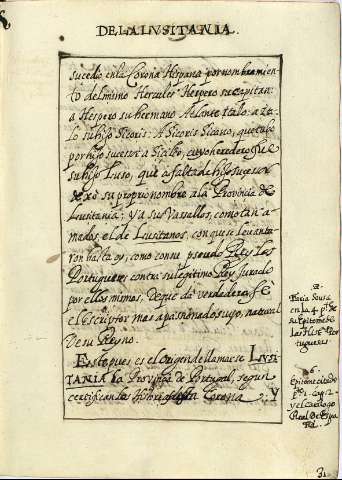 DE LA LVSITANIA.
sucedio enla Corona Hispana por nombramien
to del mismo Hercules Hespero su Capitan:
a Hespero su hermano Atlante Italo: a Ita
lo su hijo Sicoris: A Sicoris Sicano, que tubo
por hijo sucesor a Siceleo, cuyo heredero fue
su hijo Luso, que a falta de hijo sucesor
dexò su proprio nombre a la Provincia de
Lusitania; y a sus Vasallos, como tan a
mados, el de Lusitanos, con que se levanta
ron hasta oy, como con su pseudo Rey los
Portugueses contra su legitimo Rey Jurado
por ellos mismos, de que dà verdadera fè
el Escriptor mas apasionado suyo, natural
de su Reyno.
Este pues es el origen de llamarse LVSI
TANIA la Provinça de Portugal, segun
certifican las Corona; Y
a
Faria Sousa
en la 4 pte. de
su epitome de
las Hist. Por
tuguesas.
6
Epitome citado
pte. 1. cap. 2.
y el Catalogo
Real de Espa
ña.
31